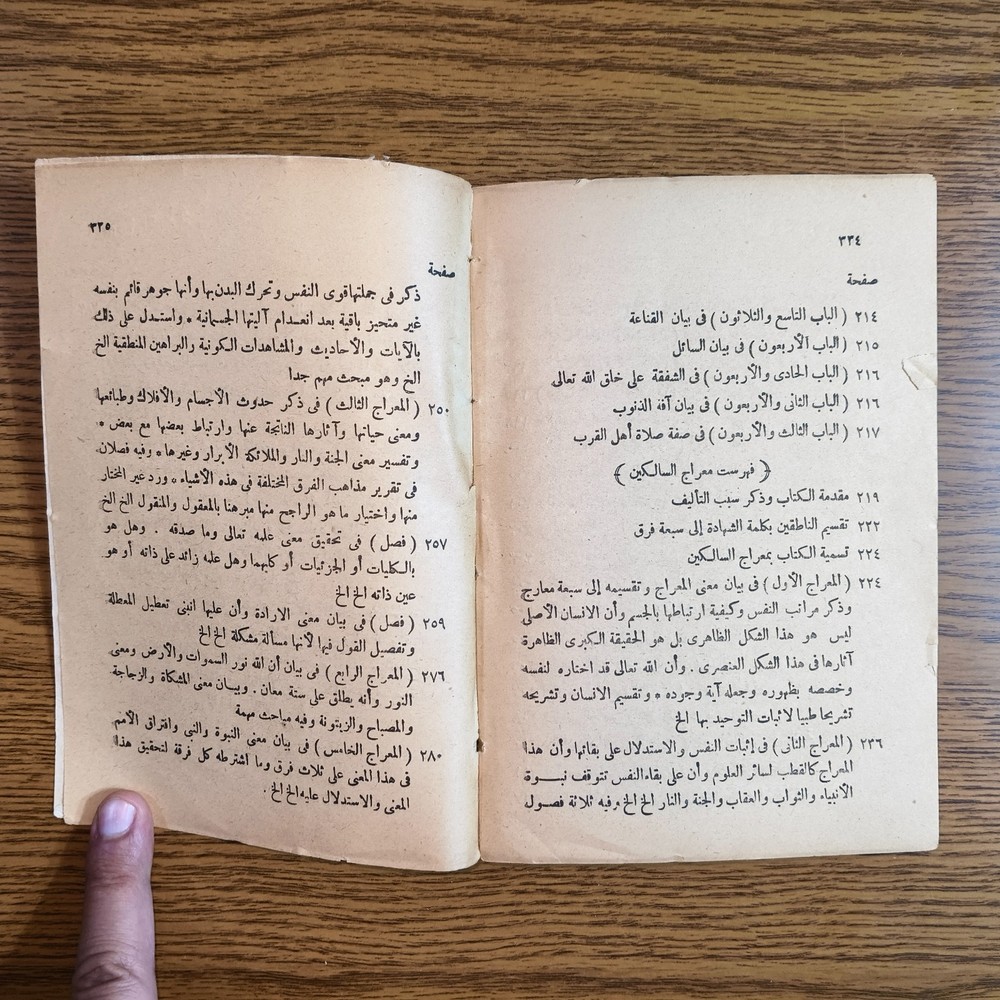 ٣٣٤
صفحة
٢١٤ ( الباب التاسع والثلاثون ) فى بيان القناعة
٢١٥ ( الباب الأربعون ) فى بيان السائل
٢١٦ ( الباب الحادى والأربعون ) فى الشفقة على خلق الله تعالى
٢١٦ ( الباب الثانى والأربعون ) فى بيان آفة الذنوب
٢١٧ ( الباب الثالث والأربعون ) فى صفة صلاة أهل القرب
﴿ فهرست معراج السالكين ﴾
٢١٩ مقدمة الكتاب وذكر سبب التأليف
٢٢٢ تقسيم الناطقين بكلمة الشهادة إلى سبعة فرق
٢٢٤ تسمية الكتاب بمعراج السالكين
٢٢٤ ( المعراج الأول ) فى بيان معنى المعراج وتقسيمه إلى سبعة معارج
وذكر مراتب النفس وكيفية ارتباطها بالجسم وأن الانسان الأصلى
ليس هو هذا الشكل الظاهرى بل هو الحقيقة الكبرى الظاهرة
آثارها فى هذا الشكل العنصرى . وأن الله تعالى قد اختاره لنفسه
وخصصه بظهوره وجعله آية وجوده * وتقسيم الانسان وتشريحه
تشريحا طبيا لاثبات التوحيد بها الخ
٢٣٦ ( المعراج الثانى ) فى إثبات النفس والاستدلال على بقائها وأن هذا
المعراج كالقطب لسائر العلوم وأن على بقاء النفس تتوقف نبـوة
الأنبياء والثواب والعقاب والجنة والنار الخ الخ وفيه ثلاثة فصـول
٣٣٥
صفحة
ذكر فى جملتها قوى النفس وتحرك البدن بها وأنها جوهر قائم بنفسه
غير متحيز باقية بعد انعـدام آليتها الجسـمانية * واستـدل على ذلك
بالآيات والأحاديث والمشاهدات الكونية والبراهين المنطقية الخ
الخ وهو مبحث مهم جدا
٢٥٠ ( المعراج الثالث ) فى ذكر حدوث الأجسام والأفلاك وطبائعها
ومعنى حياتها وآثارها الناتجة عنها وارتباط بعضها مع بعض *
وتفسير معنى الجنة والنار والملائكة الأبرار وغيرها * وفيه فصلان
فى تقرير مذاهب الفرق المختلفة فى هذه الأشياء * ورد غير المختار
منها واختيار ما هو الراجح منها مبرهنا بالمعقول والمنقول الخ الخ
٢٥٧ ( فصل ) فى تحقيق معنى علمه تعالى وما صدقه . وهل هو
بالكليات أو الجزئيات أو كليهما وهل علمه زائد على ذاته أو هو
عين ذاته الخ الخ
٢٥٩ ( فصل ) فى بيان معنى الارادة وأن عليها انبنى تعطيل المعطلة
وتفصيل القول فيها لأنها مسألة مشكلة الخ الخ
٢٧٦ ( المعراج الرابع ) فى بيان أن الله نور السموات والأرض ومعنى
النور وأنه يطلق على ستة معان . وبيـان معنى المشكاة والزجاجة
والمصباح والزيتونة وفيه مباحث مهمة
٢٨٠ ( المعراج الخامس ) فى بيان معنى النبوة والنبى وافتراق الأمم
فى هذا المعنى على ثلاث فرق وما اشترطه كل فرقة لتحقيق هذا
المعنى والاستدلال عليه الخ الخ .